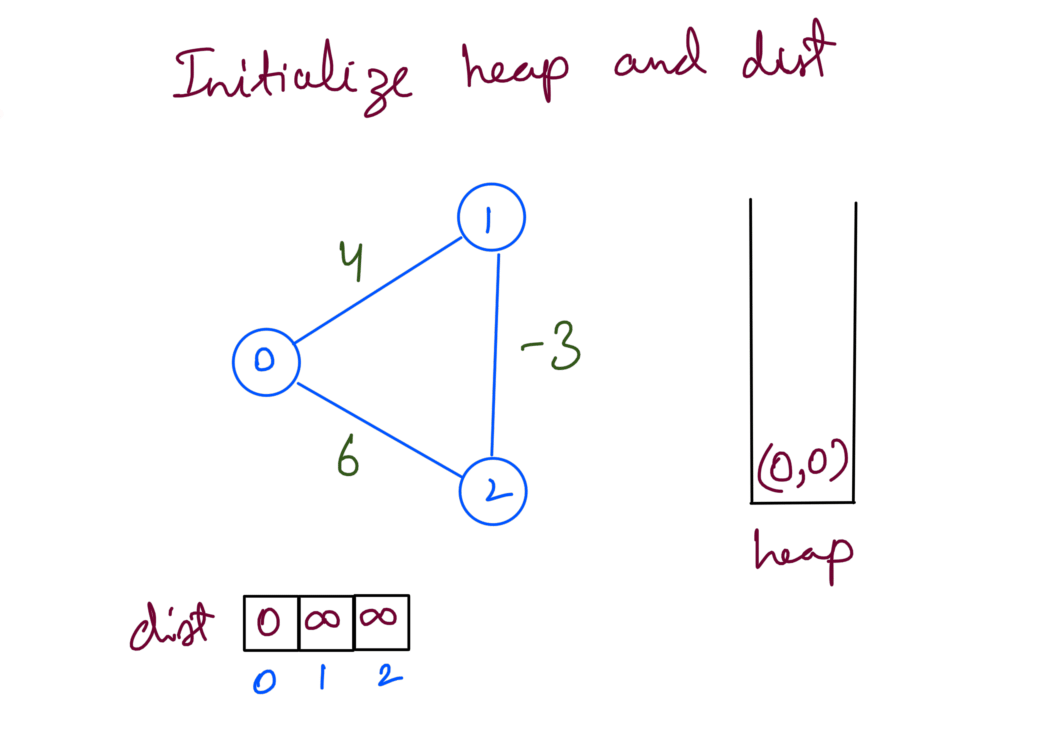 Initialize heap and dist
1
4
-3
0
6
2
(0,0)
heap
dist 0 ∞ ∞
0 1 2